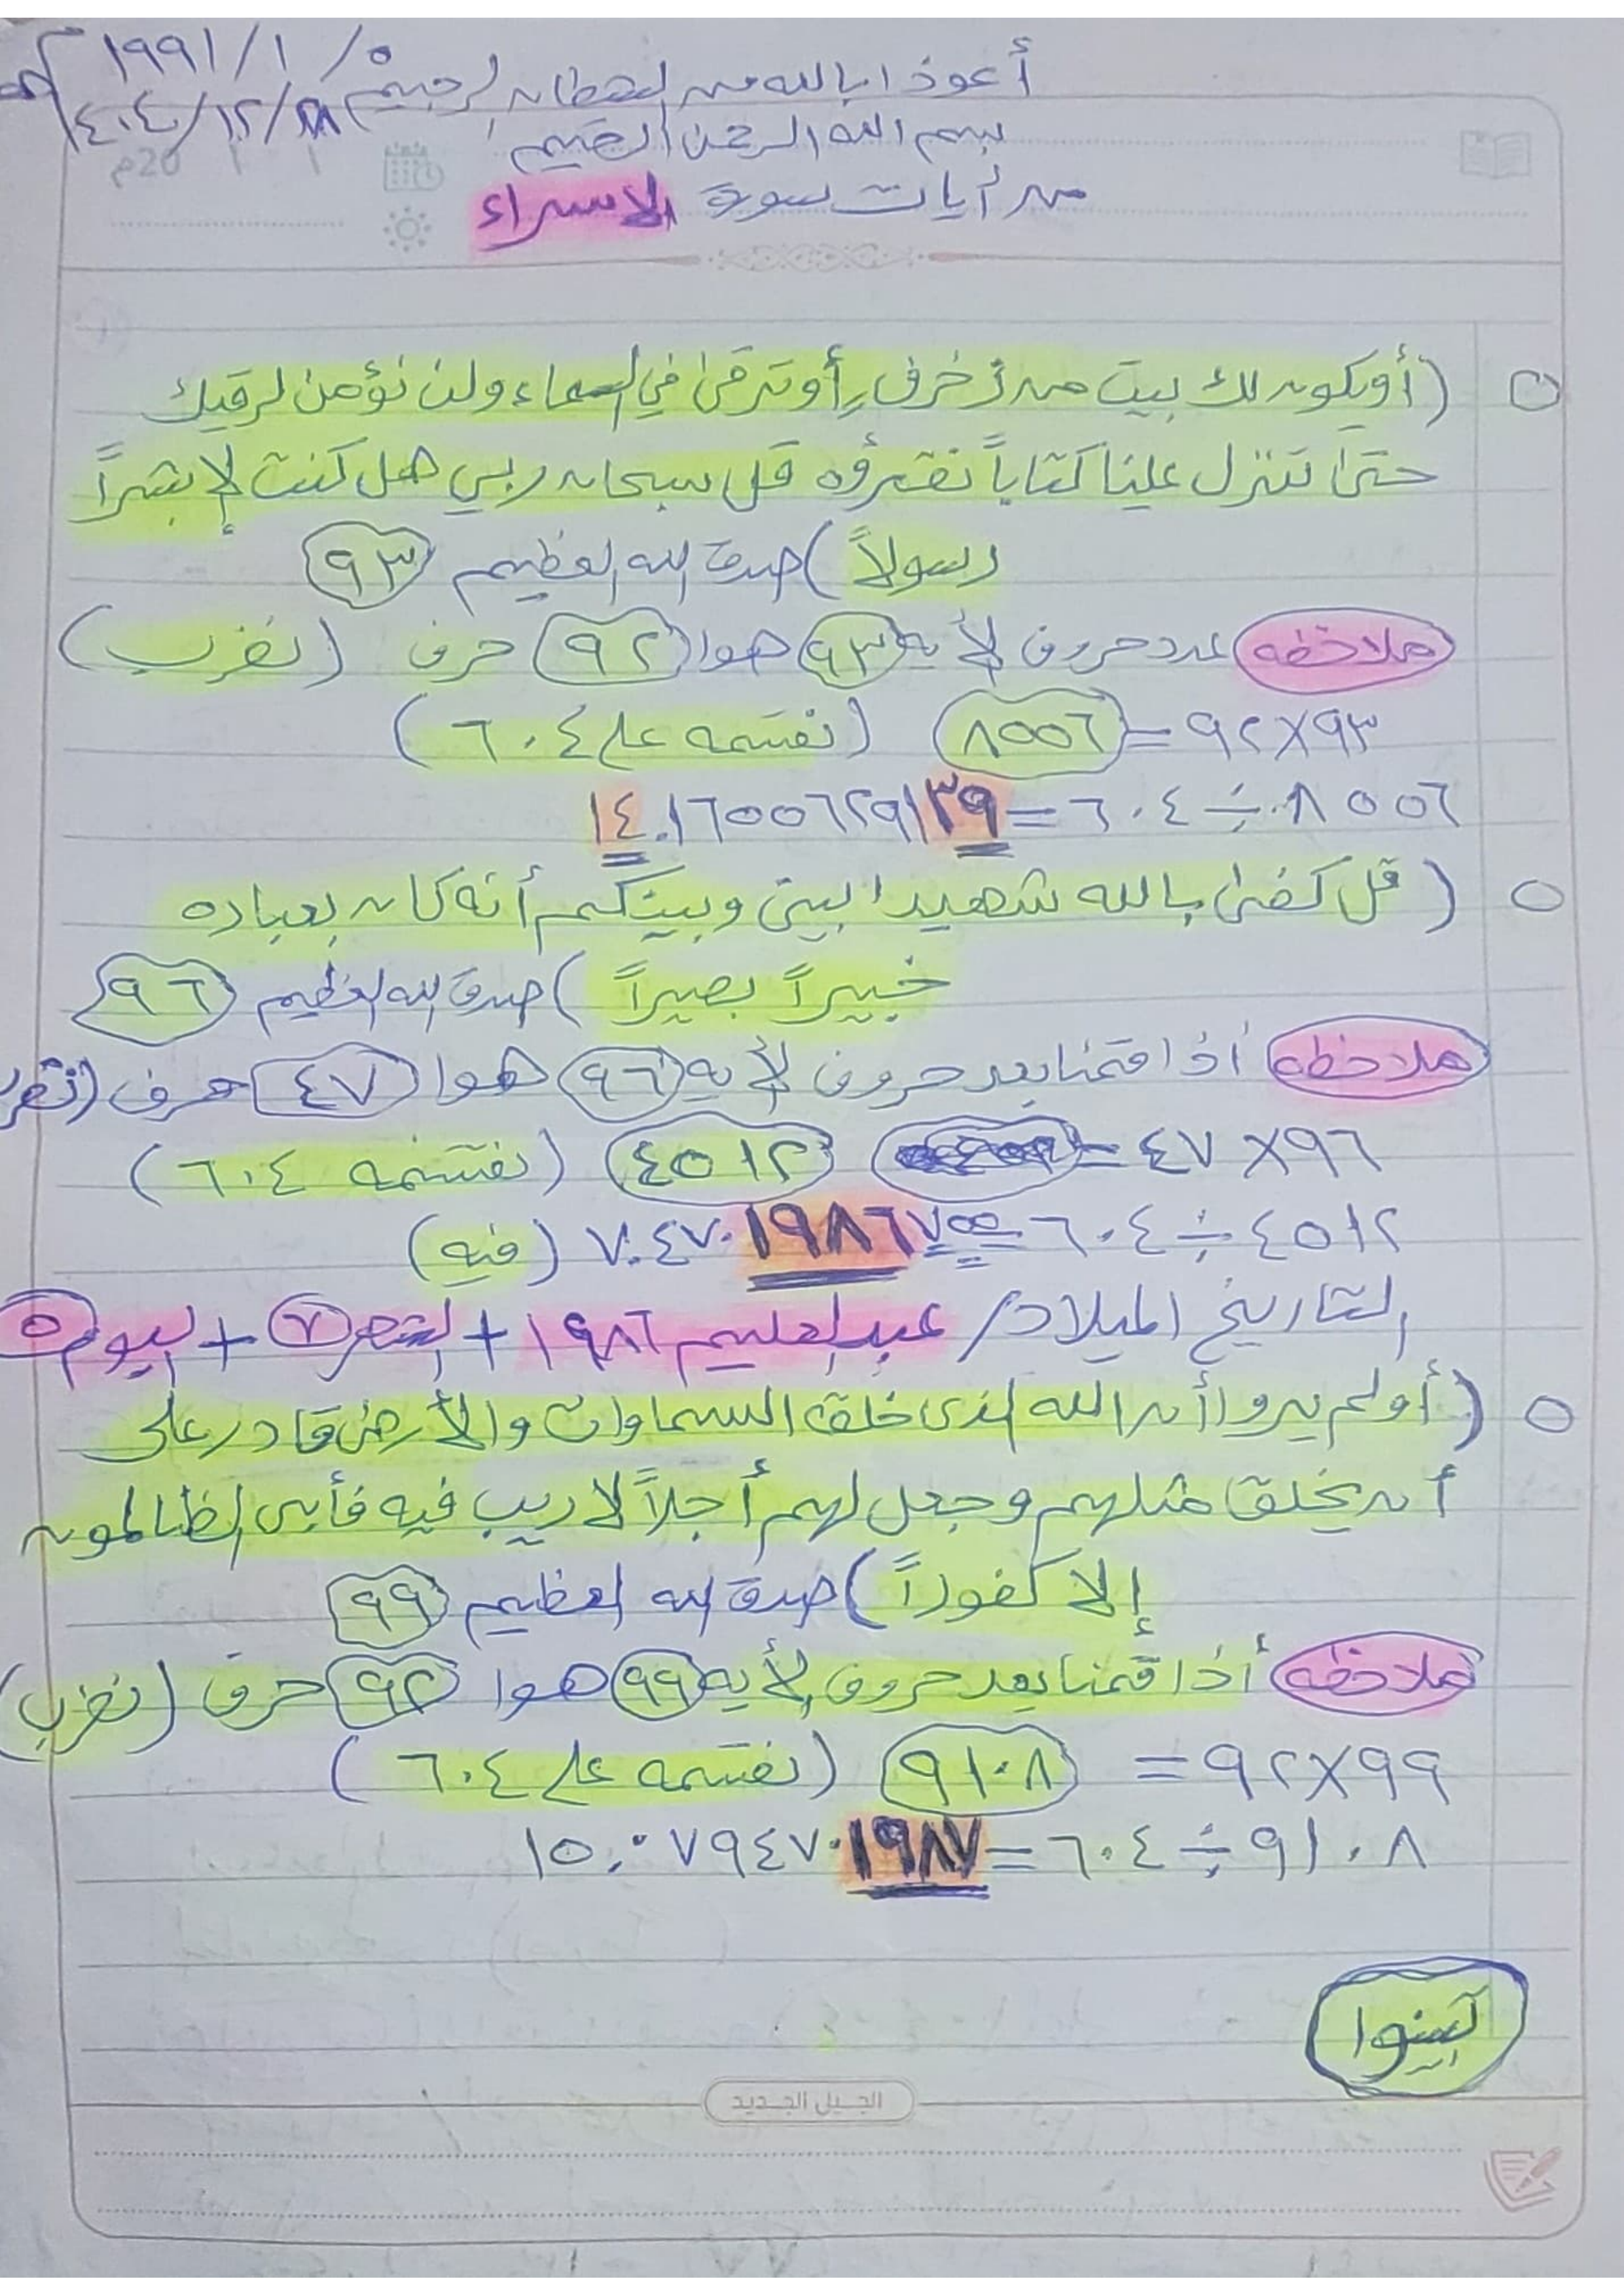 ١٩٩١/١/٥
أعوذ ابالله من الشطان الرجيم
بسم الله الرحمن الرحيم
20م
من أيات سورة الاسراء
(أويكون لك بيت من زخرف أوترقىٰ في السماء ولن نؤمن لرقيك
حتىٰ تنزل علينا كتاباً نقرؤه قل سبحان ربي هل كنت إلا بشراً
رسولاً) صدق الله العظيم ٩٣
ملاحظه عدد حروف الأيه ٩٣ هوا ٩٢ حرف (نضرب)
٩٣×٩٢=٨٥٥٦ (نقسمه على ٦٠٤)
٨٥٥٦÷٦٠٤=١٤.١٦٥٥٦٢٩١٣٩
(قل كفىٰ بالله شهيدا بيني وبينكم أنه كان بعباده
خبيراً بصيراً) صدق الله العظيم ٩٦
ملاحظه أذا قمنا بعد حروف الأيه ٩٦ هوا ٤٧ حرف (نضر
٩٦×٤٧= ٤٥١٢ (نقسمه ٦٠٤)
٤٥١٢÷٦٠٤=٧.٤٧٠١٩٨٦٧٥٥ (فيه)
التاريخ الميلاد/ عبدالعليم ١٩٨٦ + الشهر ٧ + اليوم ٥
(أولم يروا أن الله الذى خلق السماوات والأرض قادر على
أن يخلق مثلهم وجعل لهم أجلاً لا ريب فيه فأبى الظالمون
إلا كفوراً) صدق الله العظيم ٩٩
ملاحظه أذا قمنا بعد حروف الأيه ٩٩ هوا ٩٢ حرف (نضرب)
٩٩×٩٢= ٩١٠٨ (نقسمه على ٦٠٤)
٩١٠٨÷٦٠٤=١٥.٠٧٩٤٧٠١٩٨٧
الجيل الجديد